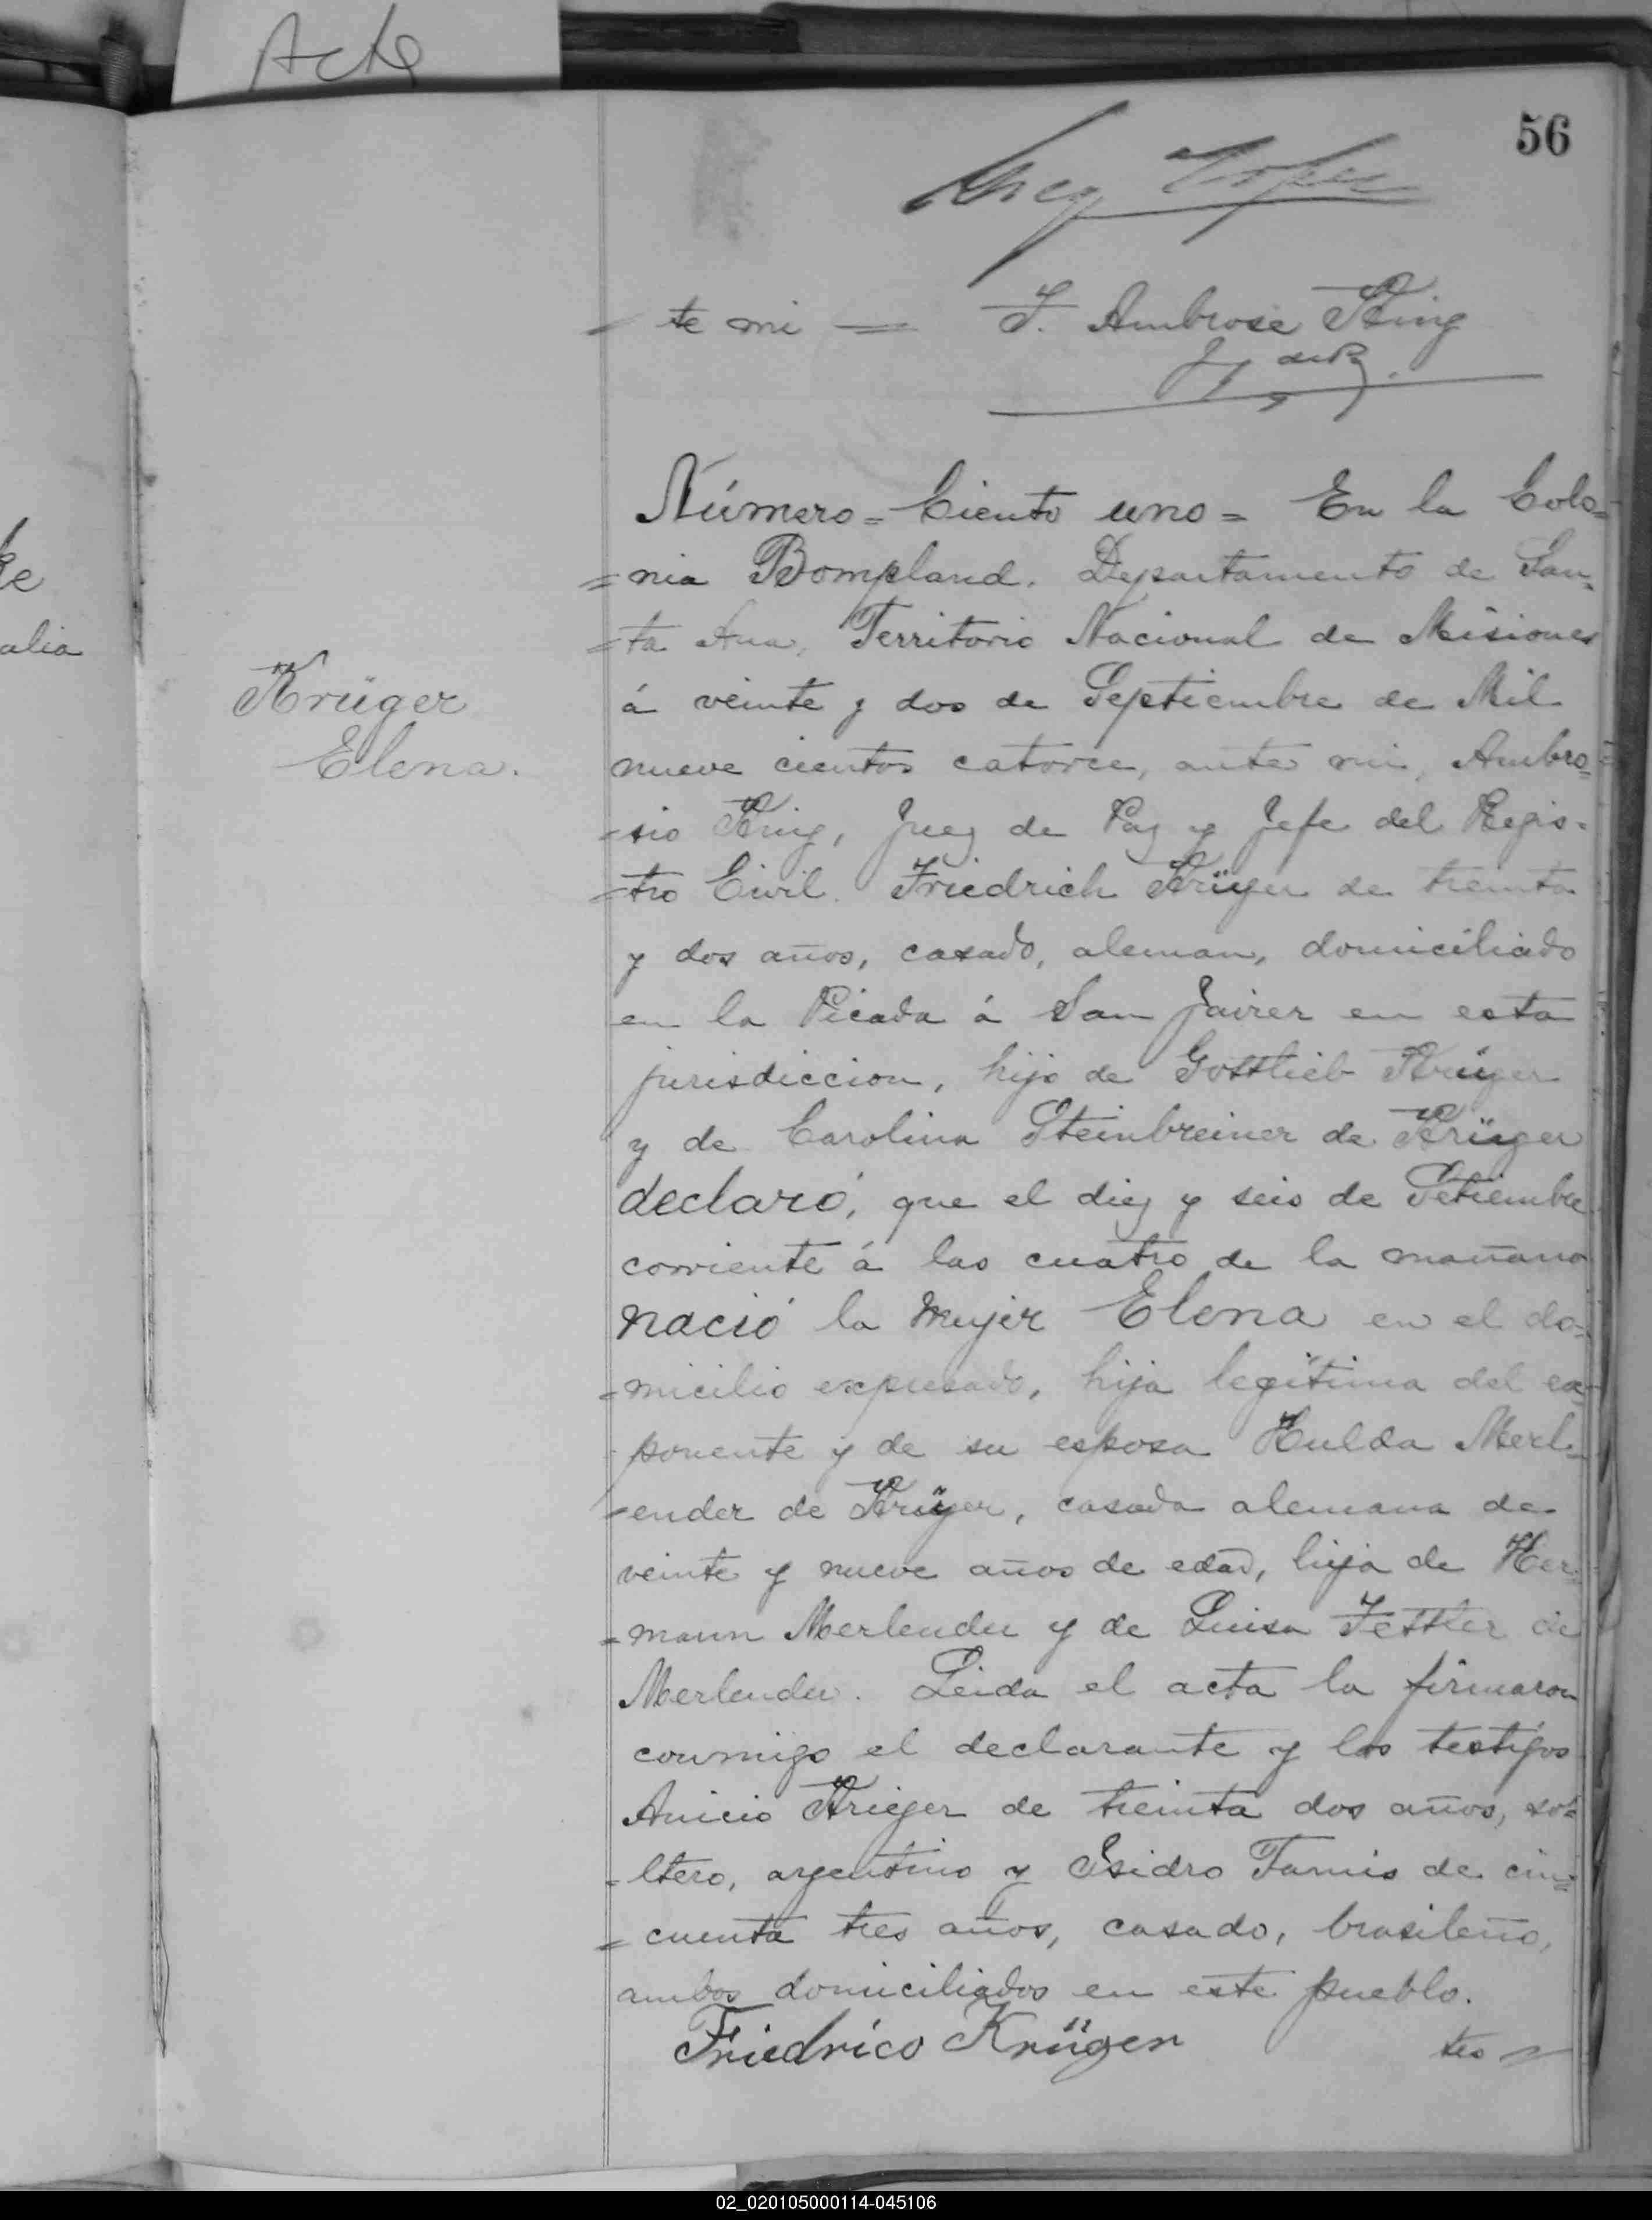 Acta
56
te mi = J. Ambrose King
J. de P.
Número = Ciento uno = En la Colo=
=nia Bompland. Departamento de San=
=ta Ana, Territorio Nacional de Misiones
á veinte y dos de Septiembre de Mil
nueve cientos catorce, ante mi, Ambro=
=sio King, Juez de Paz y Jefe del Regis=
=tro Civil. Friedrich Krüger de treinta
y dos años, casado, aleman, domiciliado
en la Picada á San Javier en esta
jurisdiccion, hijo de Gottlieb Krüger
y de Carolina Steinbreiner de Krüger
declaró, que el diez y seis de Setiembre
corriente á las cuatro de la mañana
nació la mujer Elena en el do=
=micilio expresado, hija legítima del ex=
ponente y de su esposa Hulda Merl=
=ender de Krüger, casada alemana de
veinte y nueve años de edad, hija de Her=
=mann Merlender y de Luisa Fettler de
Merlender. Leida el acta la firmaron
conmigo el declarante y los testigos
Anicio Krieger de treinta dos años, so=
=ltero, argentino y Isidro Tamis de cin=
=cuenta tres años, casado, brasileño,
ambos domiciliados en este pueblo.
Friedrico Krüger
tes =
Krüger
Elena.
ke
alia
02_020105000114-045106